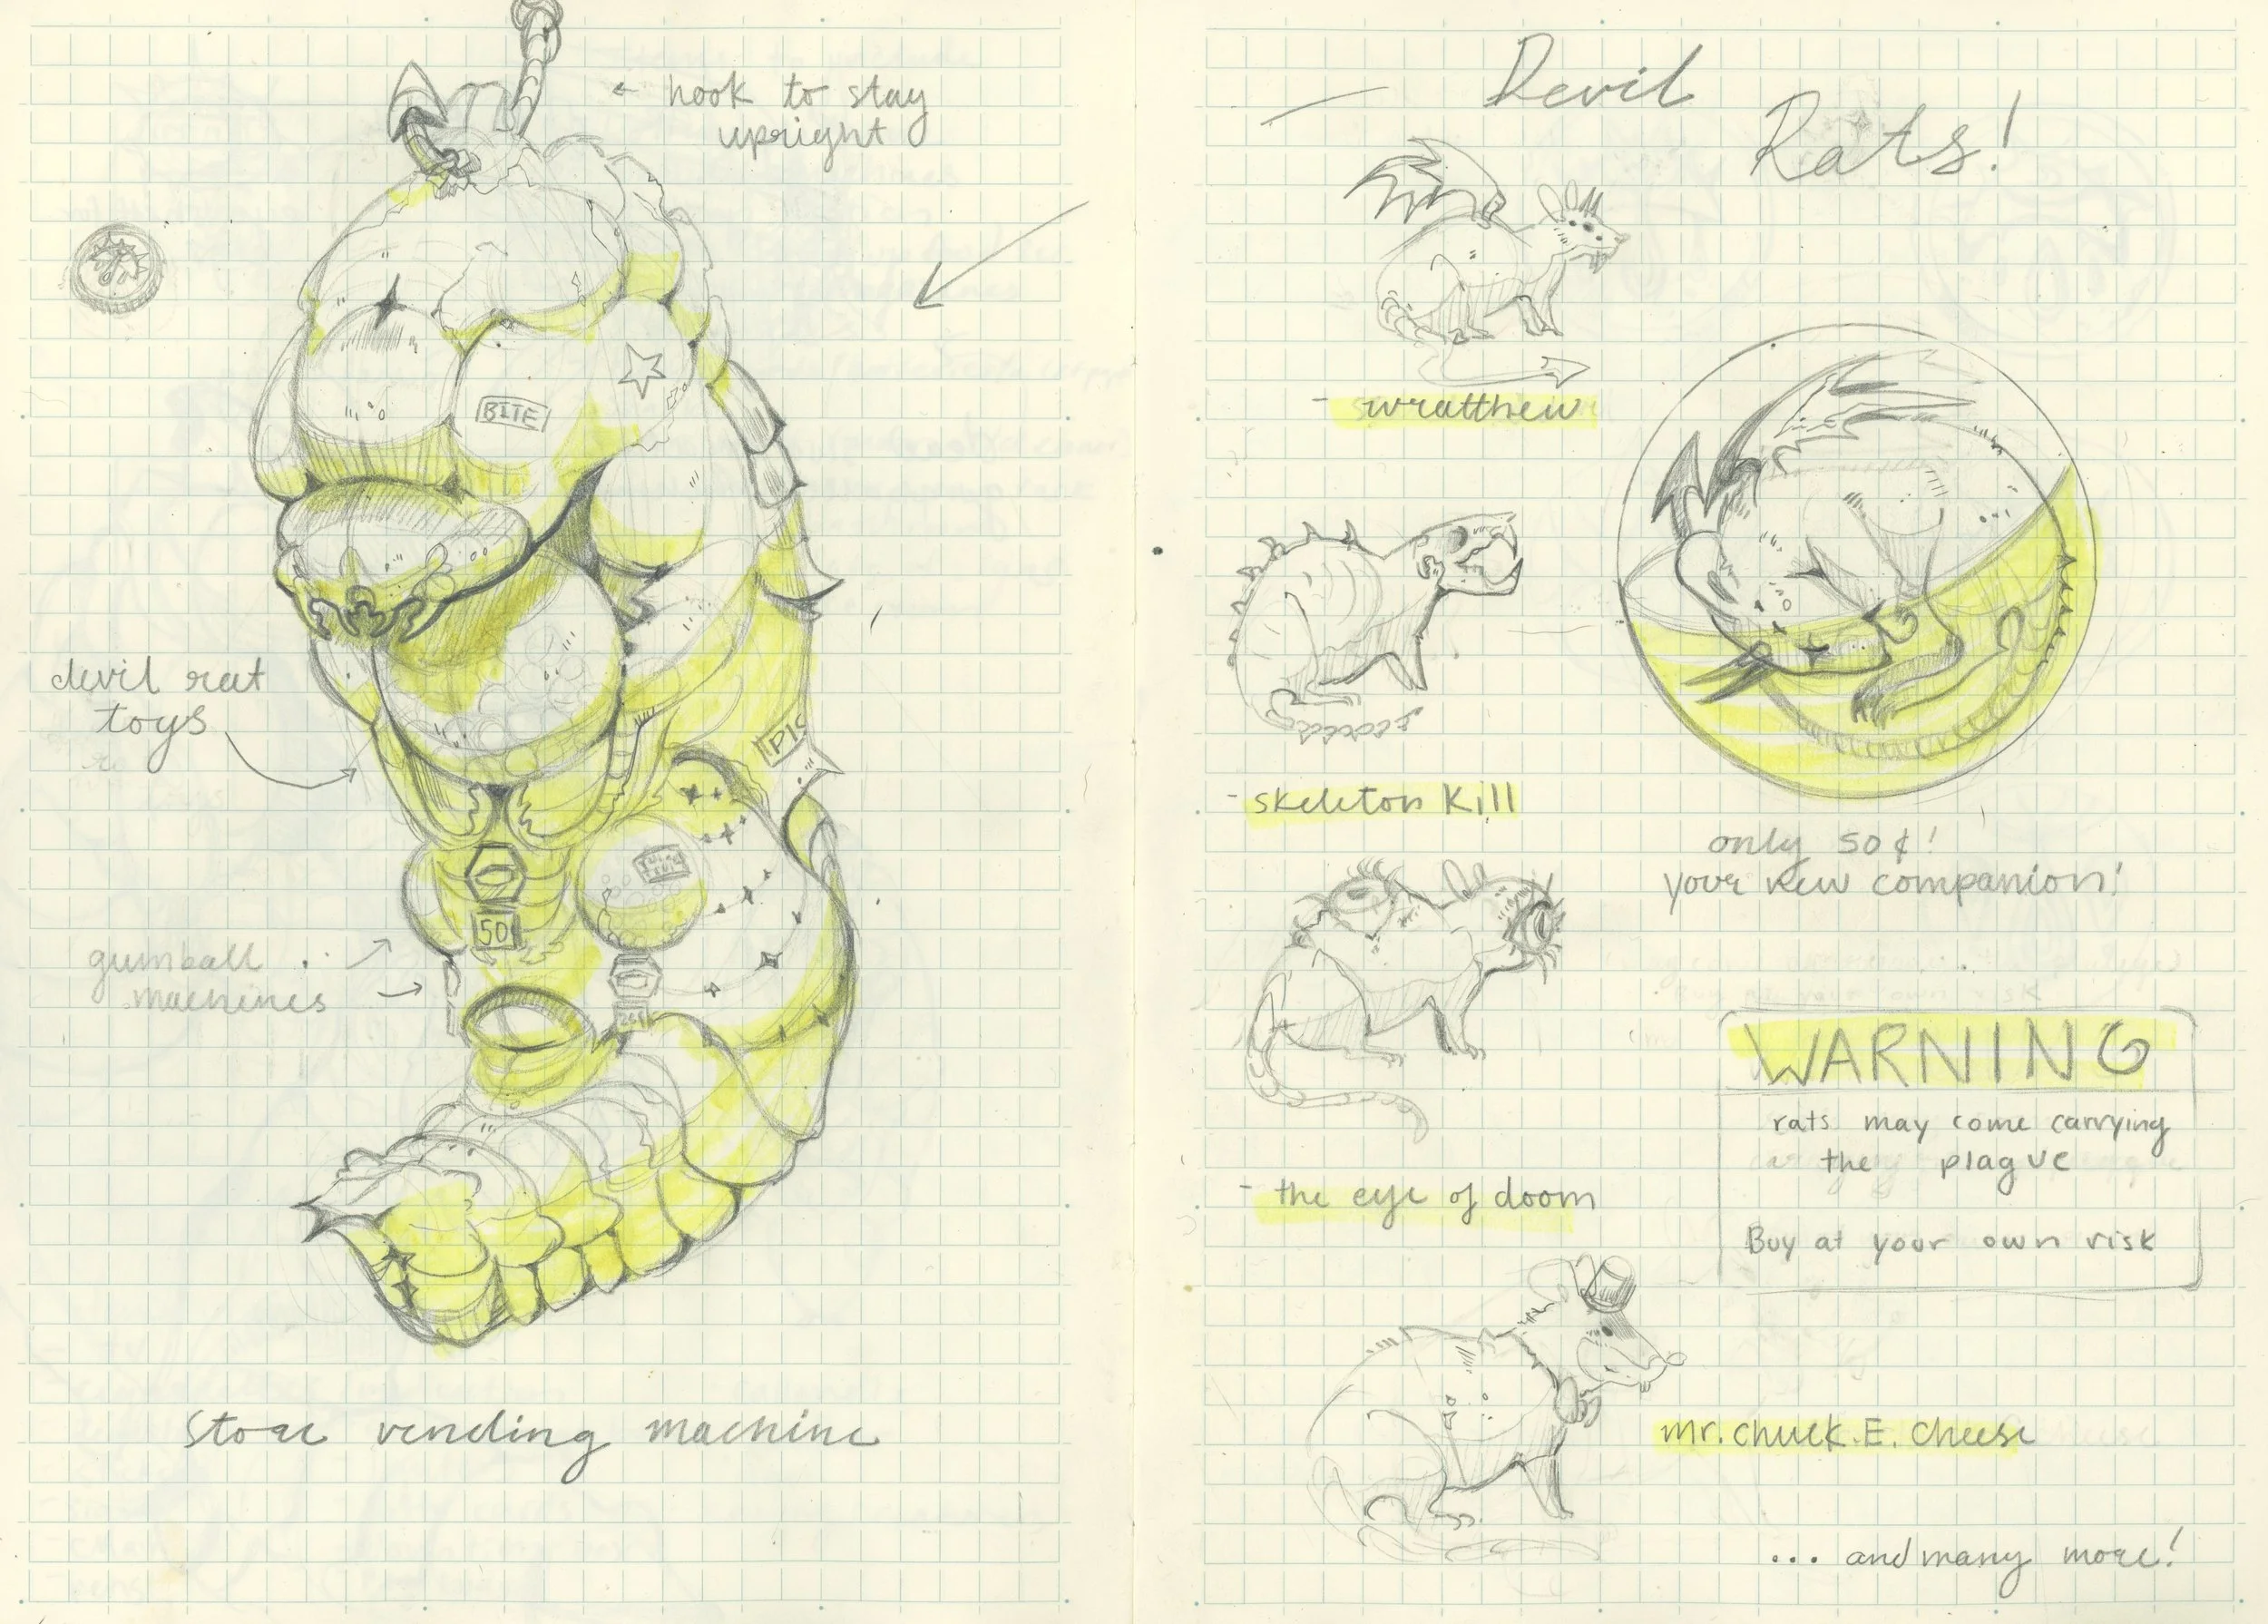 ← hook to stay
upright
BITE
devil rat
toys
50¢
gumball
machines
store vending machine
Devil
Rats!
- wratthew
- skeleton kill
only 50¢!
your new companion!
- the eye of doom
WARNING
rats may come carrying
the plague
Buy at your own risk
mr. chuck. E. cheese
... and many more!